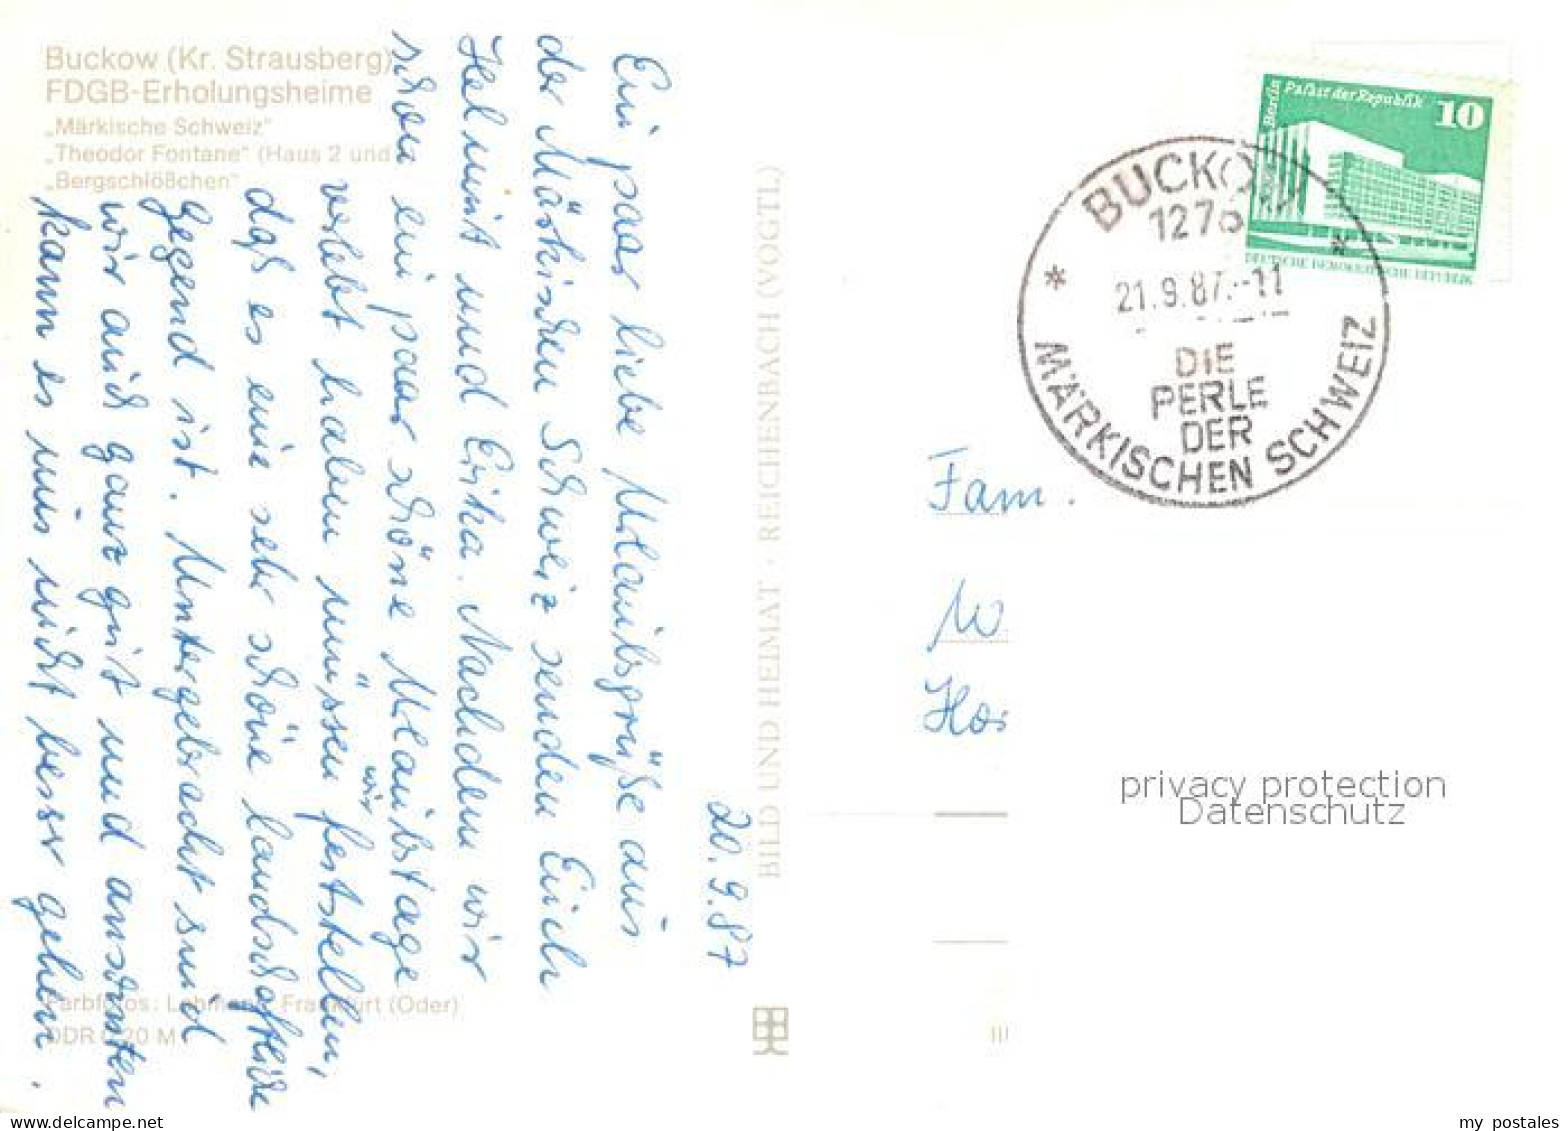 Buckow (Kr. Strausberg)
FDGB-Erholungsheime
„Märkische Schweiz"
„Theodor Fontane" (Haus 2 und
„Bergschlößchen"
20.9.87
Ein paar liebe Urlaubsgrüße aus
der Märkischen Schweiz senden Euch
Helmut und Erika. Nachdem wir
schon ein paar schöne Urlaubstage
verlebt haben müssen wir feststellen,
daß es eine sehr schöne landschaftliche
Gegend ist. Untergebracht sind
wir auch ganz gut und ansonsten
kann es uns nicht besser gehen.
Farbfotos: Lehmann, Frankfurt (Oder)
DDR 0,20 M
BILD UND HEIMAT · REICHENBACH (VOGTL)
Berlin Palast der Republik 10
DEUTSCHE DEMOKRATISCHE REPUBLIK
BUCKOW
1276
* *
21.9.87.-11
DIE
PERLE
DER
MÄRKISCHEN SCHWEIZ
Fam.
W
privacy protection
Datenschutz
my postales